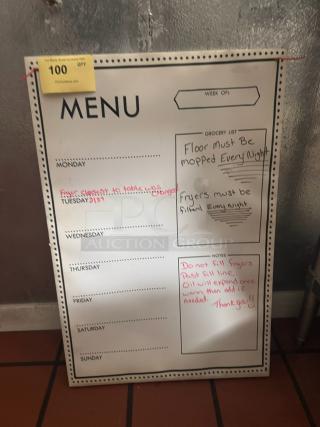 100
QTY
MENU
WEEK OF:
GROCERY LIST
Floor Must Be
mopped Every Night
MONDAY
Fryer closest to table was changed
TUESDAY 3/27
Fryers must be
filtered Every Night
WEDNESDAY
AUCTION GROUP
THURSDAY
NOTES
Do not fill fryers
Past fill line.
Oil will expand once
warm then add if
needed.
Thank you!!
FRIDAY
SATURDAY
SUNDAY